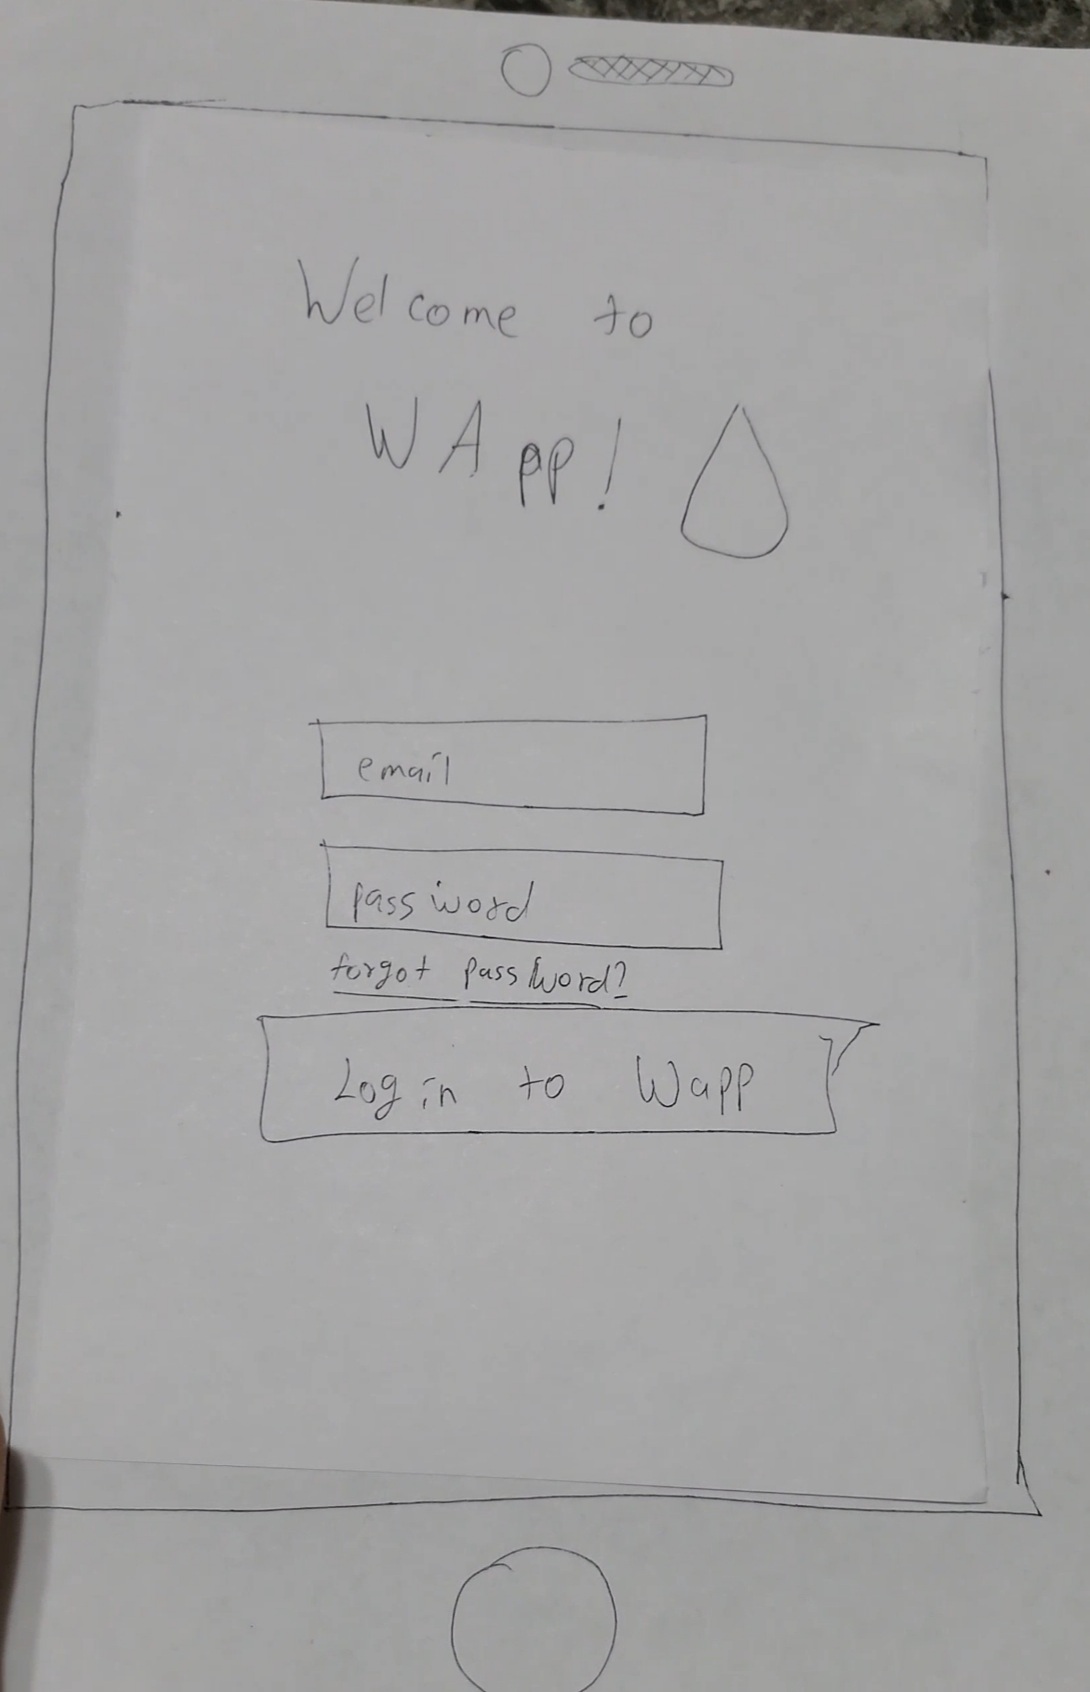 Welcome to
WApp!
email
password
forgot password?
Login to Wapp